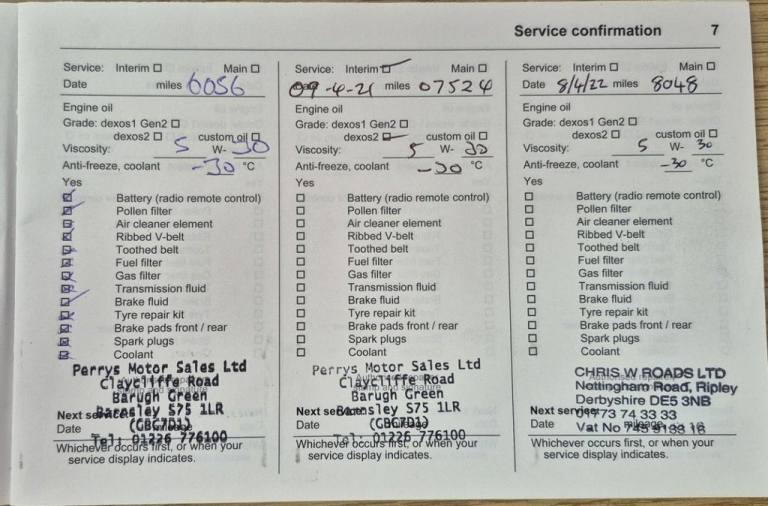 Service confirmation 7
Service: Interim Main
Date miles 6056
Engine oil
Grade: dexos1 Gen2
dexos2 custom oil
Viscosity: 5 W- 30
Anti-freeze, coolant -30 °C
Yes
Battery (radio remote control)
Pollen filter
Air cleaner element
Ribbed V-belt
Toothed belt
Fuel filter
Gas filter
Transmission fluid
Brake fluid
Tyre repair kit
Brake pads front / rear
Spark plugs
Coolant
Perrys Motor Sales Ltd
Claycliffe Road
Barugh Green
Barnsley S75 1LR
(GBC7D1)
Tel: 01226 776100
Next service:
Date
Whichever occurs first, or when your
service display indicates.
Service: Interim Main
09-4-21 miles 07524
Engine oil
Grade: dexos1 Gen2
dexos2 custom oil
Viscosity: 5 W- 30
Anti-freeze, coolant -30 °C
Yes
Battery (radio remote control)
Pollen filter
Air cleaner element
Ribbed V-belt
Toothed belt
Fuel filter
Gas filter
Transmission fluid
Brake fluid
Tyre repair kit
Brake pads front / rear
Spark plugs
Coolant
Perrys Motor Sales Ltd
Claycliffe Road
Barugh Green
Barnsley S75 1LR
(GBC7D1)
Tel: 01226 776100
Next service:
Date mileage
Whichever occurs first, or when your
service display indicates.
Service: Interim Main
Date 8/4/22 miles 8048
Engine oil
Grade: dexos1 Gen2
dexos2 custom oil
Viscosity: 5 W- 30
Anti-freeze, coolant -30 °C
Yes
Battery (radio remote control)
Pollen filter
Air cleaner element
Ribbed V-belt
Toothed belt
Fuel filter
Gas filter
Transmission fluid
Brake fluid
Tyre repair kit
Brake pads front / rear
Spark plugs
Coolant
CHRIS W ROADS LTD
Nottingham Road, Ripley
Derbyshire DE5 3NB
01773 74 33 33
Vat No
Next service:
Date mileage
Whichever occurs first, or when your
service display indicates.